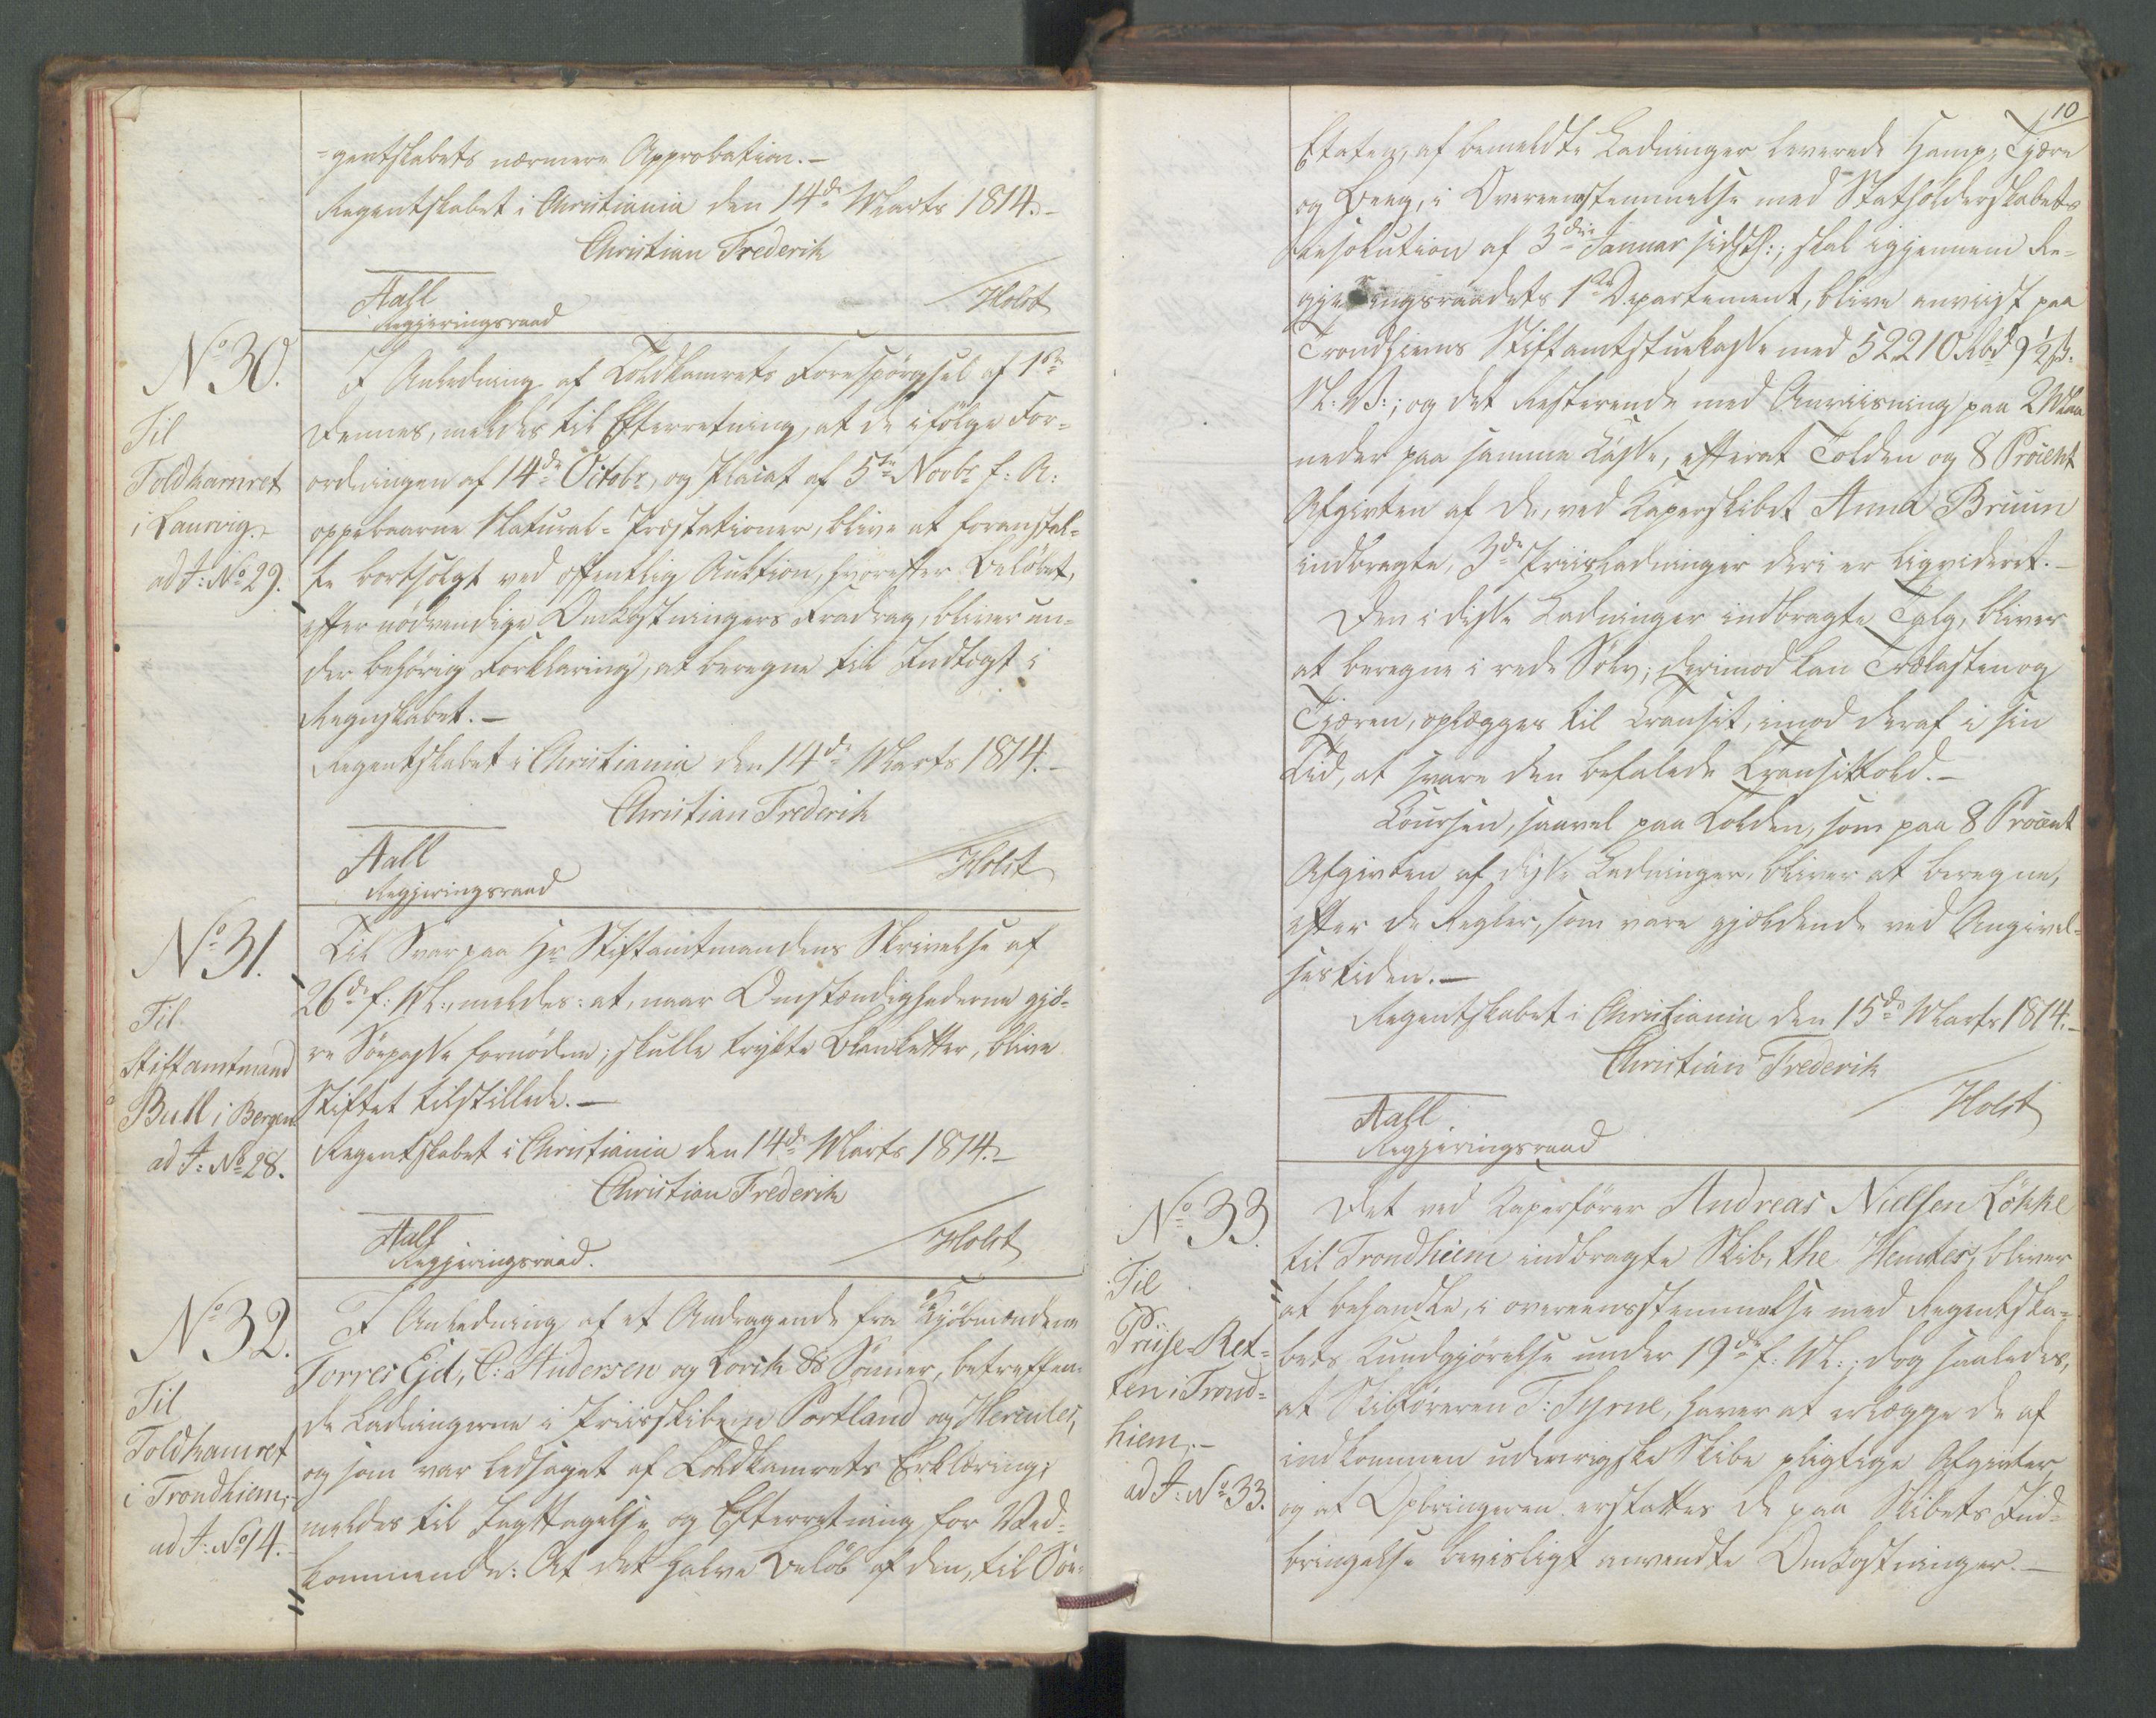 =gentskabets nærmere Approbation.—
Regentskabet i Christiania den 14de Marts 1814.—
Christian Frederik
Aall
Regjeringsraad
Holst
No 30.
Til
Toldkamret
i Laurvig.
ad J: No 29.
I Anledning af Toldkamrets Forespörgsel af 1ste
dennes, meldes til Efterretning, at de ifölge For=
ordningen af 14de Octobr, og Placat af 5te Novbr f: A:
oppebaarne Natural-Præstationer, blive at foranstal=
te bortsolgt ved offentlig Auktion, hvorefter Belöbet,
efter nödvendige Omkostningers Fradrag, bliver un=
der behörig Forklaring, at beregne til Indtægt i
Regnskabet.—
Regentskabet i Christiania den 14de Marts 1814.—
Christian Frederik
Aall
Regjeringsraad
Holst
No 31.
Til
Stiftamtmand
Bull i Bergen
ad J: No 28.
Til Svar paa Hr Stiftamtmandens Skrivelse af
26de f: M:, meldes: at, naar Omstændighederne gjö=
re Söepasse fornödne; skulle trykte Blanketter, blive
Stiftet tilstillede.—
Regentskabet i Christiania den 14de Marts 1814.—
Christian Frederik
Aall
Regjeringsraad.
Holst
No 32.
Til
Toldkamret
i Trondhiem,
ad J: No 14.
I Anledning af et Andragende fra Kjöbmændene
Torres Eid, C: Andersen og Lorck & Sönner, betreffen=
de Ladningerne i Priisskibene Portland og Hercules,
og som var ledsaget af Toldkamrets Erklæring;
meldes til Iagttagelse og Efterretning for Ved=
kommende: At det halve Belöb af den, til Söe=
10
Etaten, af bemeldte Ladninger leverede Hamp, Tjære
og Beeg, i Overeenstemmelse med Statholderskabets
Resolution af 3die Januar sidstl:, skal igjennem Re=
gjeringsraadets 1ste Departement, blive anviist paa
Trondhiems Stiftamtstuekasse med 52210 Rbd 9½ ß:
N: V:; og det Resterende med Anviisning paa 2 Maa
neder paa samme Kasse, efterat Tolden og 8 Procent
Afgivten af de, ved Kaperskibet Anna Bruun
indbragte, 3de Priisladninger deri er liqvideret.—
Den i disse Ladninger indbragte Talg, bliver
at beregne i rede Sölv; derimod kan Trælasten og
Tjæren, oplægges til Transit, imod deraf i sin
Tid, at svare den befalede Transittold.—
Coursen, saavel paa Tolden, som paa 8 Procent
Afgivten af disse Ladninger, bliver at beregne,
efter de Regler, som vare gjældende ved Angivel=
sestiden.—
Regentskabet i Christiania den 15de Marts 1814.—
Christian Frederik
Aall
Regjeringsraad
Holst
No 33.
Til
Priise-Ret=
ten i Trond=
hiem.—
ad J: No 33.
Det ved Kaperförer Andreas Nielsen Lökke
til Trondhiem indbragte Skib, the Hunter, bliver
at behandle, i overeensstemmelse med Regentska=
bets Kundgjörelse under 19de f: M:; dog saaledes,
at Skibföreren T: Syrne, haver at erlægge de af
indkommen udenrigske Skibe pligtige Afgivter,
og at Opbringeren erstattes de paa Skibets Ind=
bringelse bevisligt anvendte Omkostninger.—